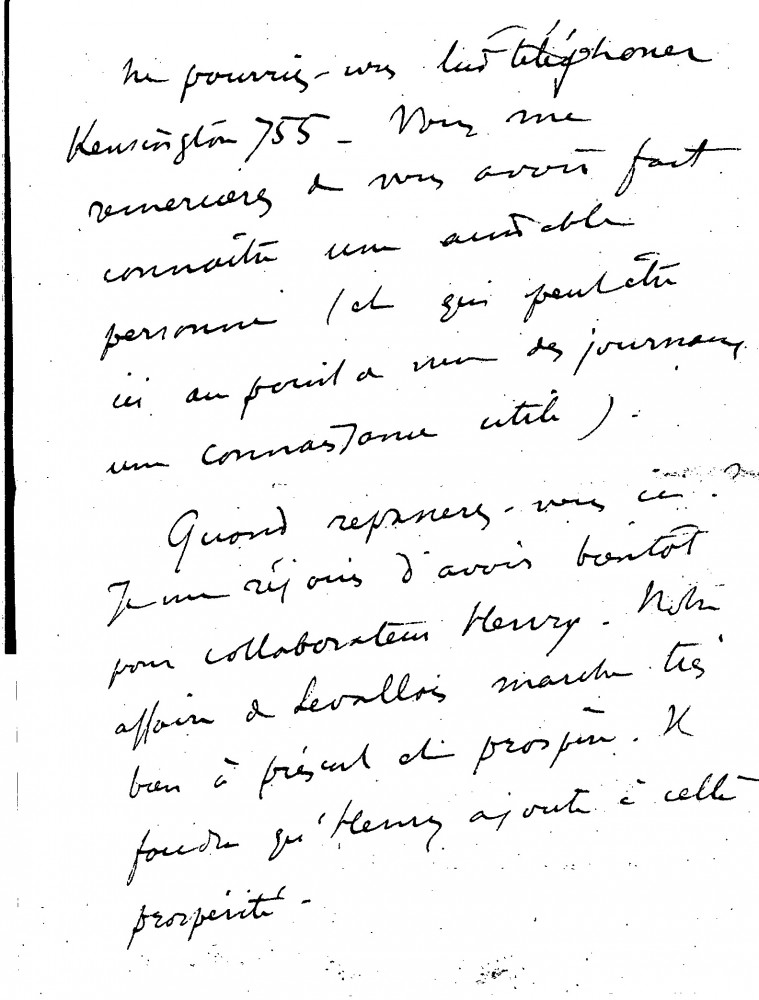 Ne pourriez-vous lui téléphoner
Kensington 755 - Vous me
remercierez de vous avoir fait
connaître une aimable
personne (et qui peut être
ici au point de vue des journaux
une connaissance utile).
Quand repasserez-vous ici ?
Je me réjouis d'avoir bientôt
pour collaborateur Henry. Notre
affaire de Levallois marche très
bien à présent et prospère. Il
faudra qu'Henry ajoute à cette
prospérité -